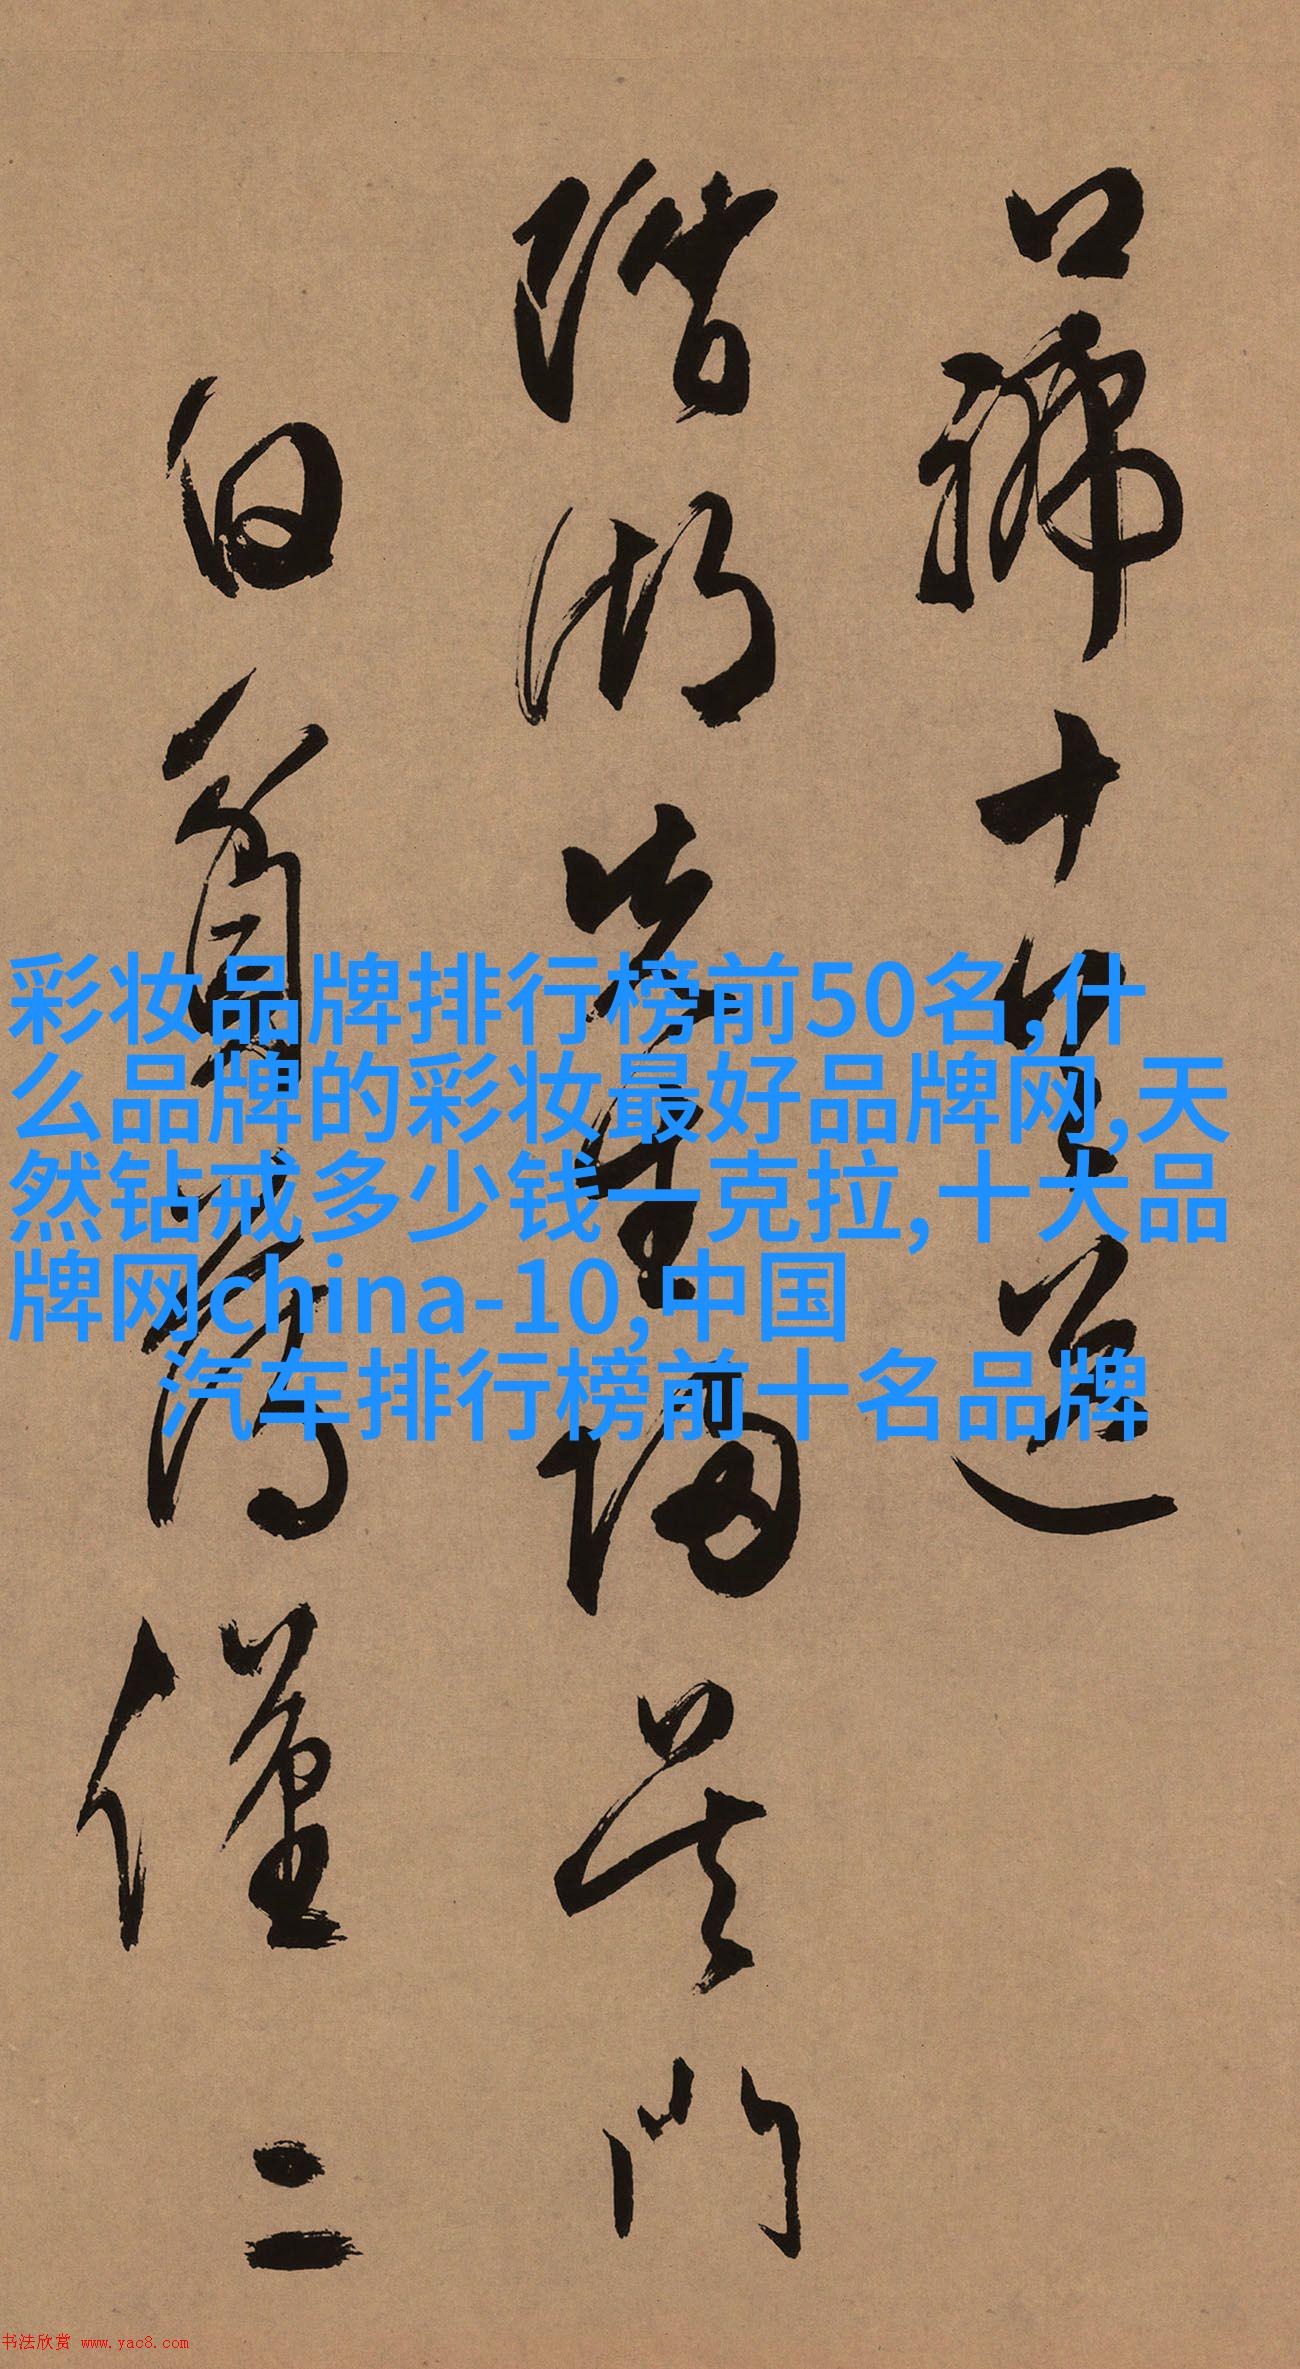 口號十首送
階湖先生歸吴門
白首為僅二
彩妆品牌排行榜前50名,什
么品牌的彩妆最好品牌网,天
然钻戒多少钱一克拉,十大品
牌网china-10,中国
汽车排行榜前十名品牌
书法欣赏 www.yac8.com